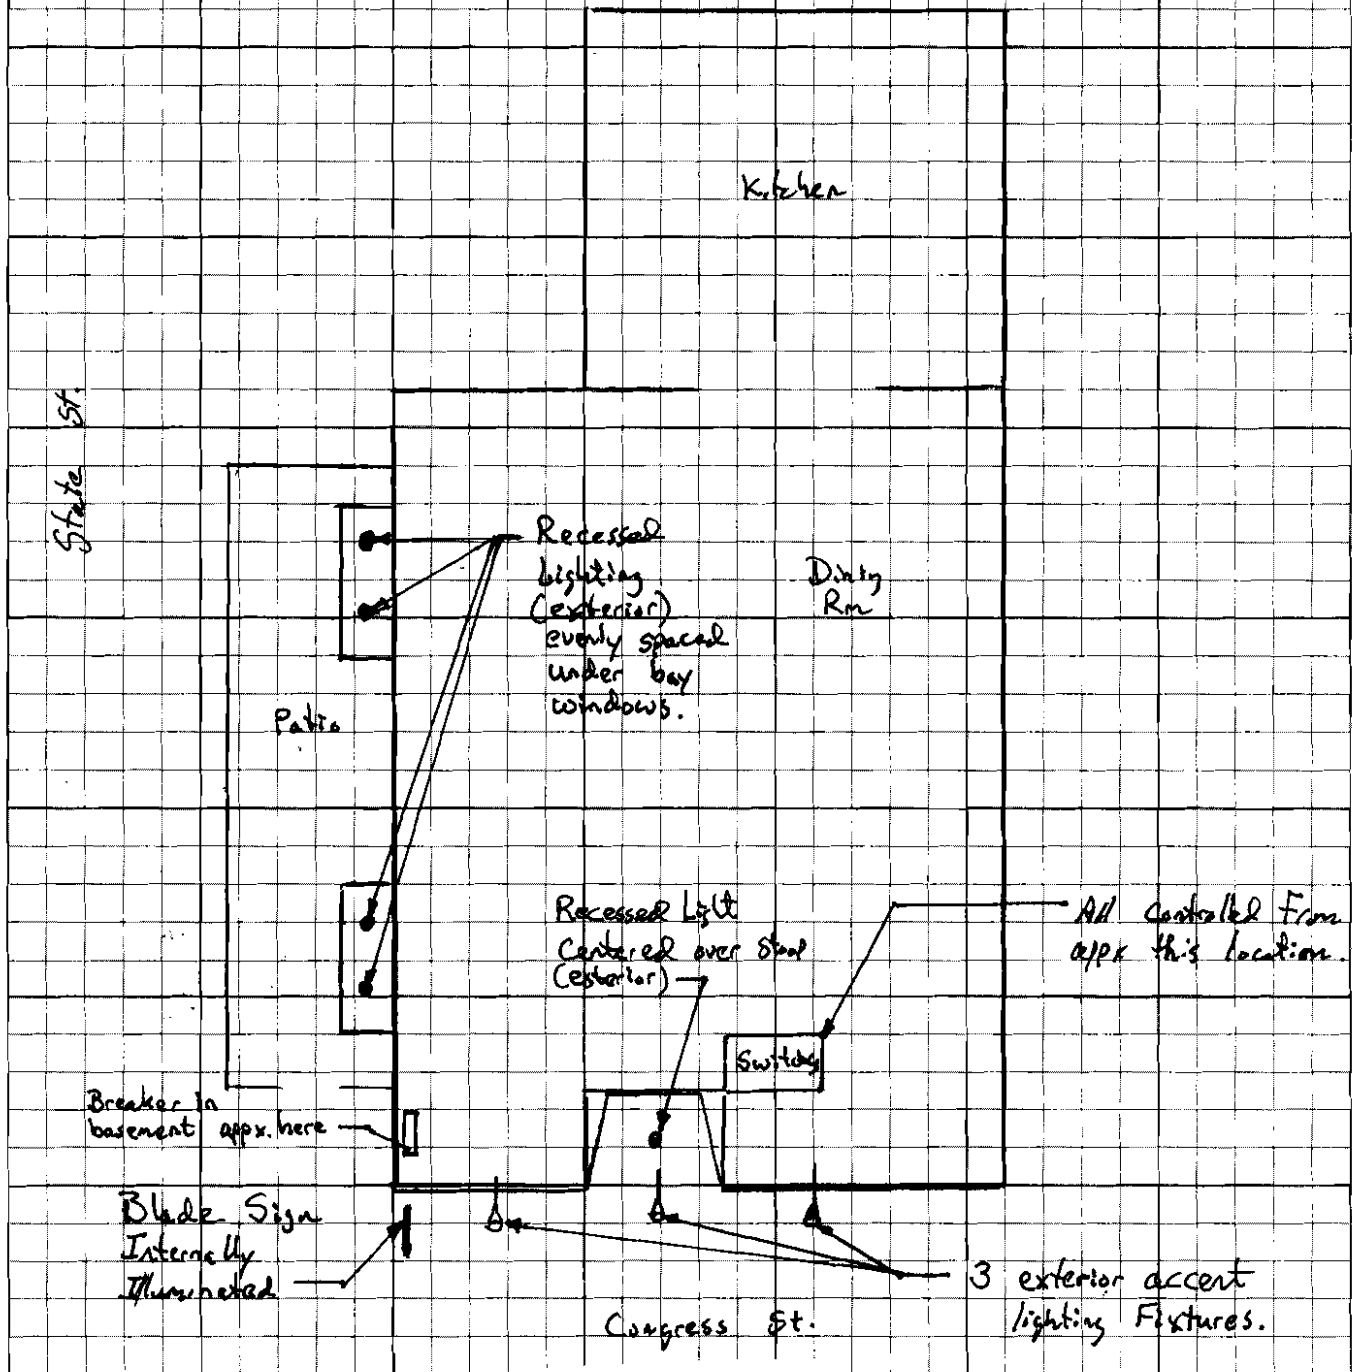 Kitchen
State St.
Recessed
Lighting
(exterior)
evenly spaced
under bay
windows.
Dining
Rm
Patio
Recessed Light
Centered over Stoop
(exterior)
All Controlled From
appx this location.
Switches
Breaker in
basement appx. here
Blade Sign
Internally
Illuminated
3 exterior accent
lighting Fixtures.
Congress St.